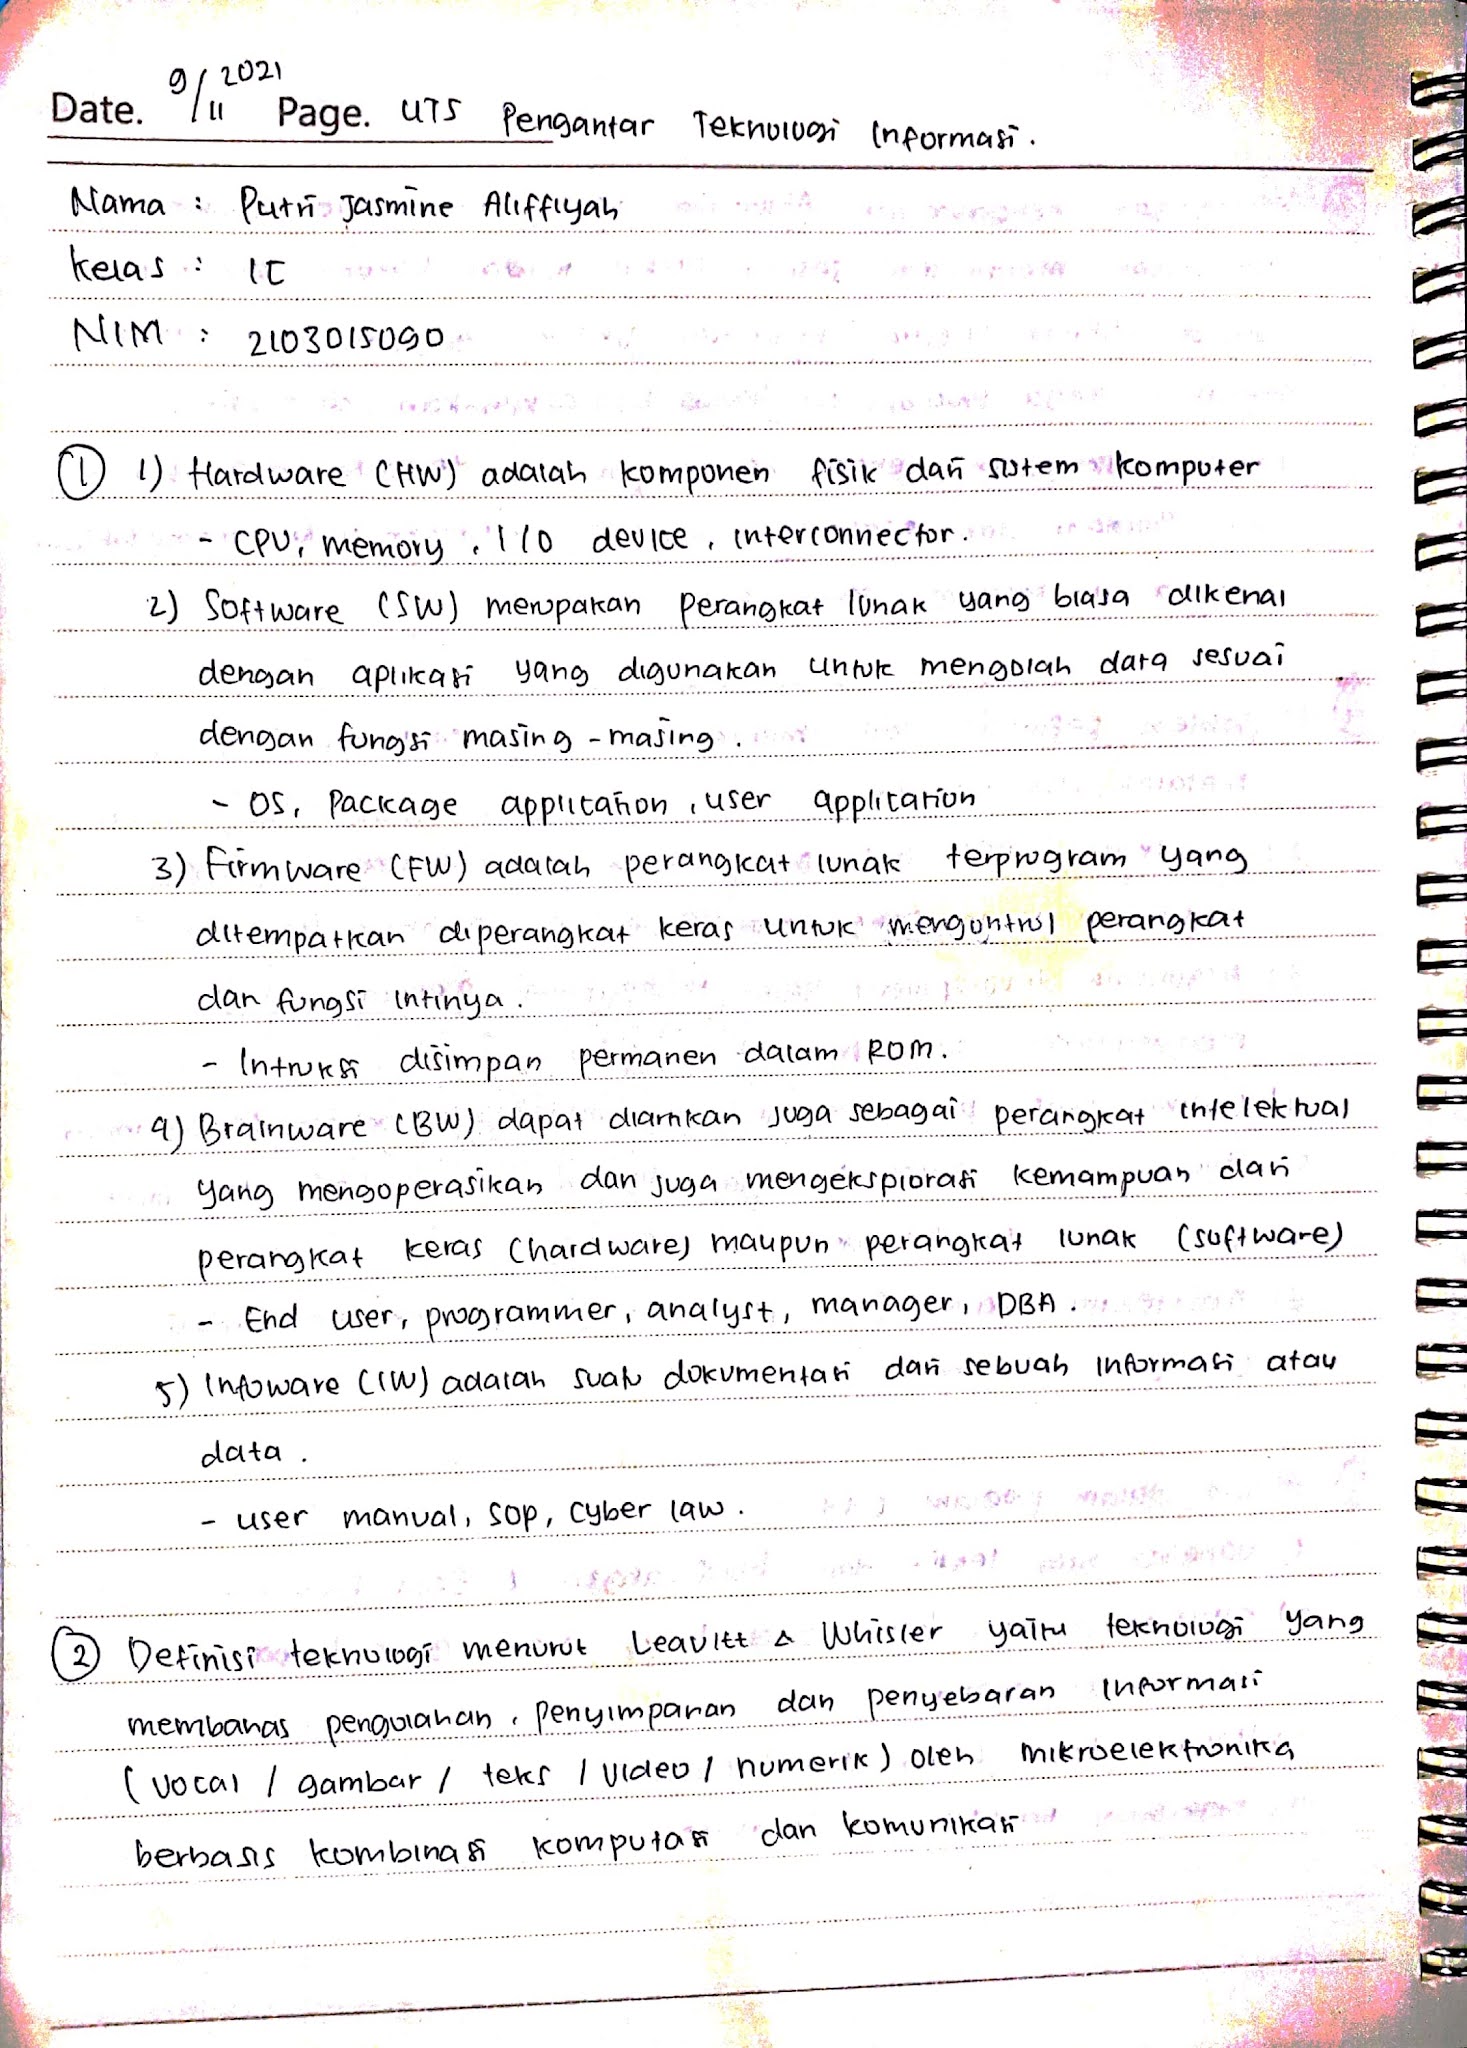 Date. 9/11 2021 Page. UTS Pengantar Teknologi Informasi.
Nama : Putri Jasmine Aliffiyah
Kelas : 1C
NIM : 2103015090
① 1) Hardware (HW) adalah komponen fisik dari sistem komputer
- CPU, memory, I/O device, interconnector.
2) Software (SW) merupakan perangkat lunak yang biasa dikenal
dengan aplikasi yang digunakan untuk mengolah data sesuai
dengan fungsi masing-masing.
- OS, Package application, user application
3) Firmware (FW) adalah perangkat lunak terprogram yang
ditempatkan diperangkat keras untuk mengontrol perangkat
dan fungsi intinya.
- Intruksi disimpan permanen dalam ROM.
4) Brainware (BW) dapat diartikan juga sebagai perangkat intelektual
yang mengoperasikan dan juga mengeksplorasi kemampuan dari
perangkat keras (hardware) maupun perangkat lunak (software)
- End user, programmer, analyst, manager, DBA.
5) Infoware (IW) adalah suatu dokumentasi dari sebuah informasi atau
data.
- user manual, SOP, Cyber law.
② Definisi teknologi menurut Leavitt & Whisler yaitu teknologi yang
membahas pengolahan, penyimpanan dan penyebaran informasi
(vocal / gambar / teks / video / numerik) oleh mikroelektronika
berbasis kombinasi komputasi dan komunikasi